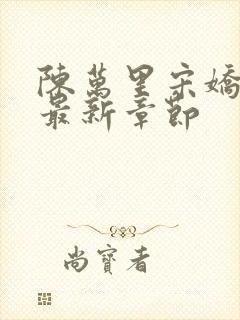 陳萬里宋嬌
最新章節
尚寶者